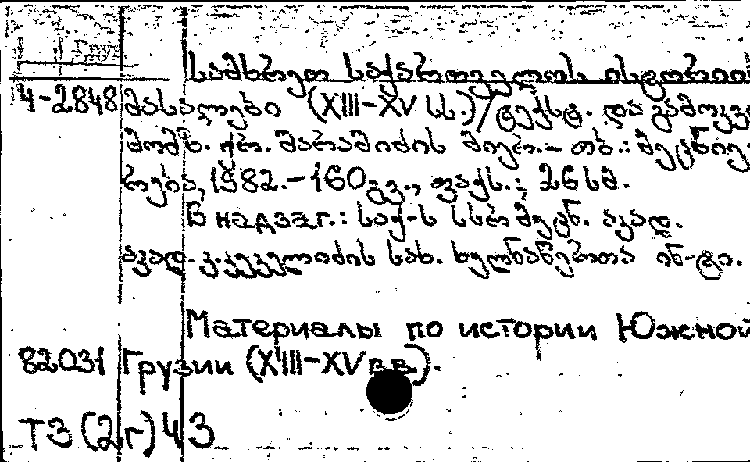 Груз
სამხრეთ საქართველოს ისტორიის
4-2848 მასალები (XIII-XV სს.)/ტექსტ. და გამოკვ.
მომზ. ქრ. შარაშიძის მიერ.- თბ.: მეცნიე-
რება, 1982.-160გვ., ფაქს.; 26სმ.
В надзаг.: საქ-ს სსრ მეცნ. აკად.
აკად. კ.კეკელიძის სახ. ხელნაწერთა ინ-ტი.
Материалы по истории Южной
82031 Грузии (XIII-XV вв.).
Т3(2Г)43